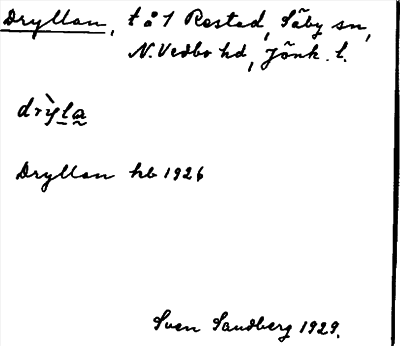 Dryllan, t å 1 Rostad, Säby sn,
N. Vedbo hd, Jönk. l.
drỳla
Dryllan hb 1926
Sven Sandberg 1929.